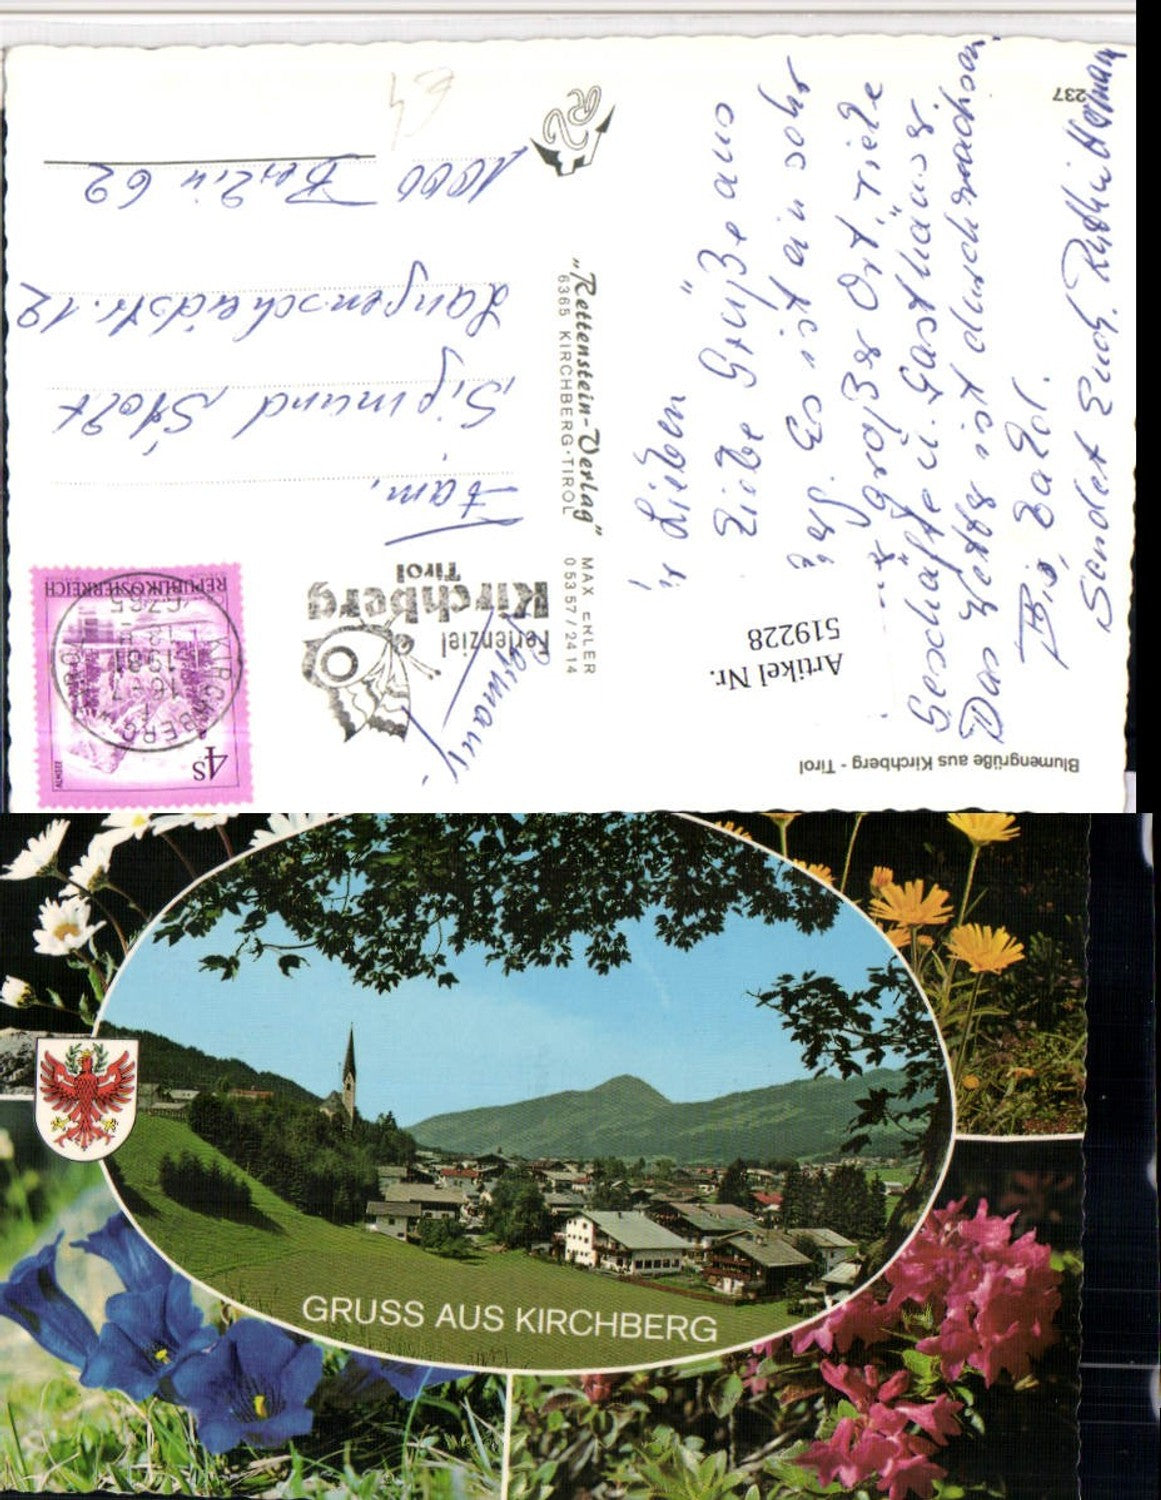 237
Blumengrüße aus Kirchberg - Tirol
Ihr Lieben
Liebe Grüße aus
Es ist ein sehr
großer Ort. Viele
Geschäfte u. Gasthäuser.
Das Wetter ist durchwachsen.
Bis bald.
Sendet Euch Ruth u. Herman
Artikel Nr.
519228
"Rettenstein-Verlag" MAX ENLER
6365 KIRCHBERG-TIROL 05357/2414
Ferienziel
Kirchberg
Tirol
REPUBLIK ÖSTERREICH
4S
ALMSEE
KIRCHBERG
1981
6365
Fam.
Sigmund Stolt
Langenscheidtstr. 12
1000 Berlin 62
Germany
GRUSS AUS KIRCHBERG